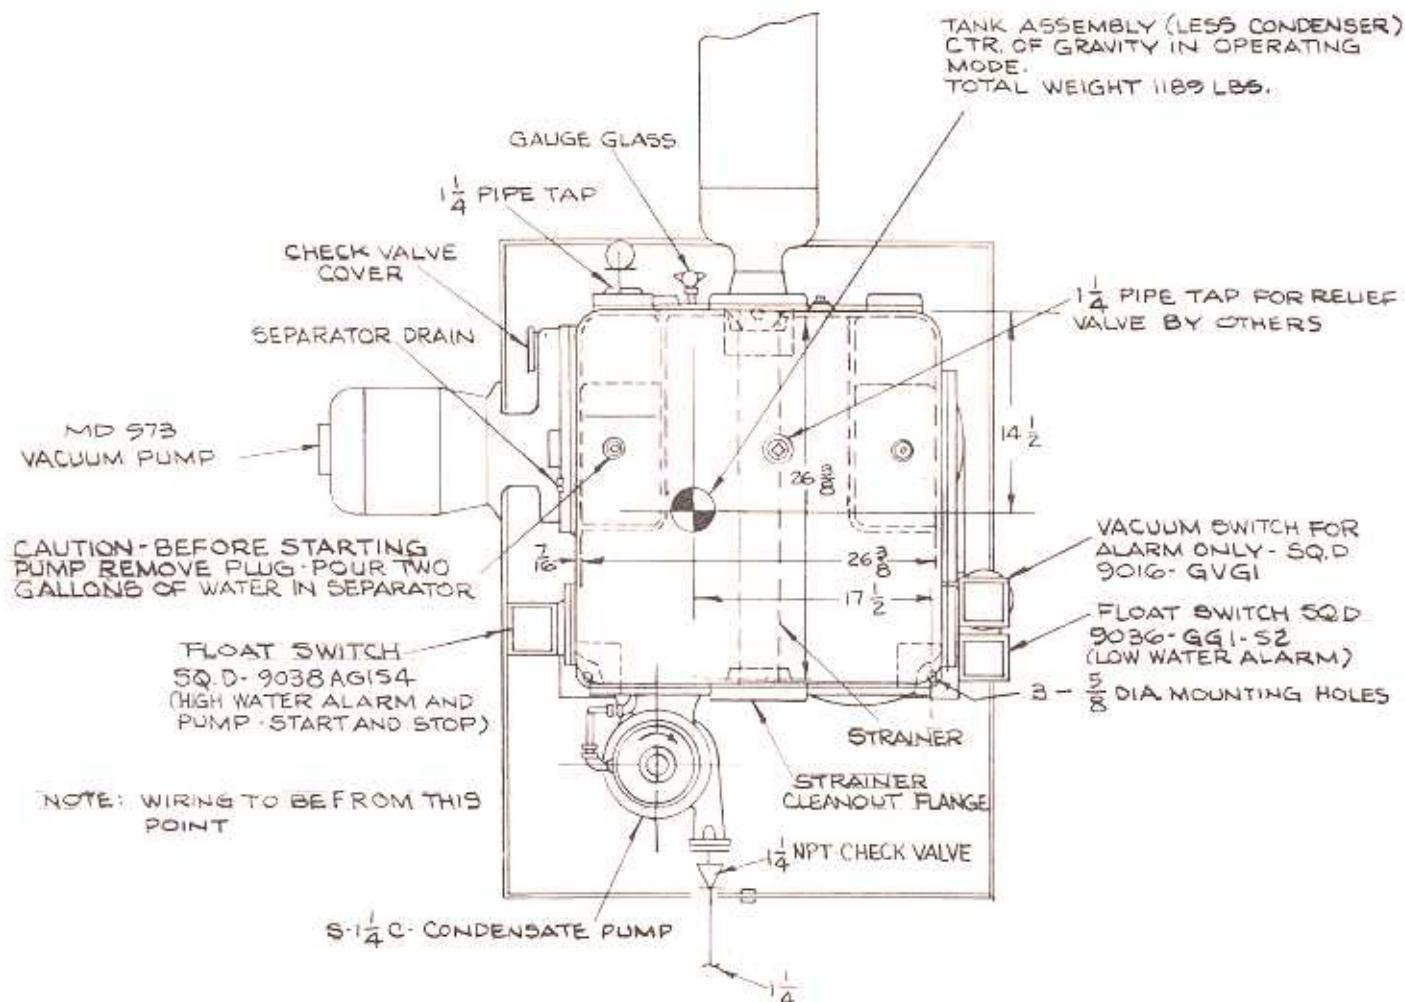 TANK ASSEMBLY (LESS CONDENSER)
CTR. OF GRAVITY IN OPERATING
MODE.
TOTAL WEIGHT 1189 LBS.
GAUGE GLASS
1 1/4 PIPE TAP
CHECK VALVE
COVER
SEPARATOR DRAIN
1 1/4 PIPE TAP FOR RELIEF
VALVE BY OTHERS
14 1/2
MD 573
VACUUM PUMP
26 3/8
CAUTION-BEFORE STARTING
PUMP REMOVE PLUG-POUR TWO
GALLONS OF WATER IN SEPARATOR
7/16
26 3/8
17 1/2
VACUUM SWITCH FOR
ALARM ONLY - SQ.D
9016-GVG1
FLOAT SWITCH SQ.D
9036-GG1-S2
(LOW WATER ALARM)
FLOAT SWITCH
SQ.D-9038AG1S4
(HIGH WATER ALARM AND
PUMP-START AND STOP)
3 - 5/8 DIA. MOUNTING HOLES
STRAINER
STRAINER
CLEANOUT FLANGE
NOTE: WIRING TO BE FROM THIS
POINT
1 1/4 NPT CHECK VALVE
S-1 1/4 C- CONDENSATE PUMP
1 1/4